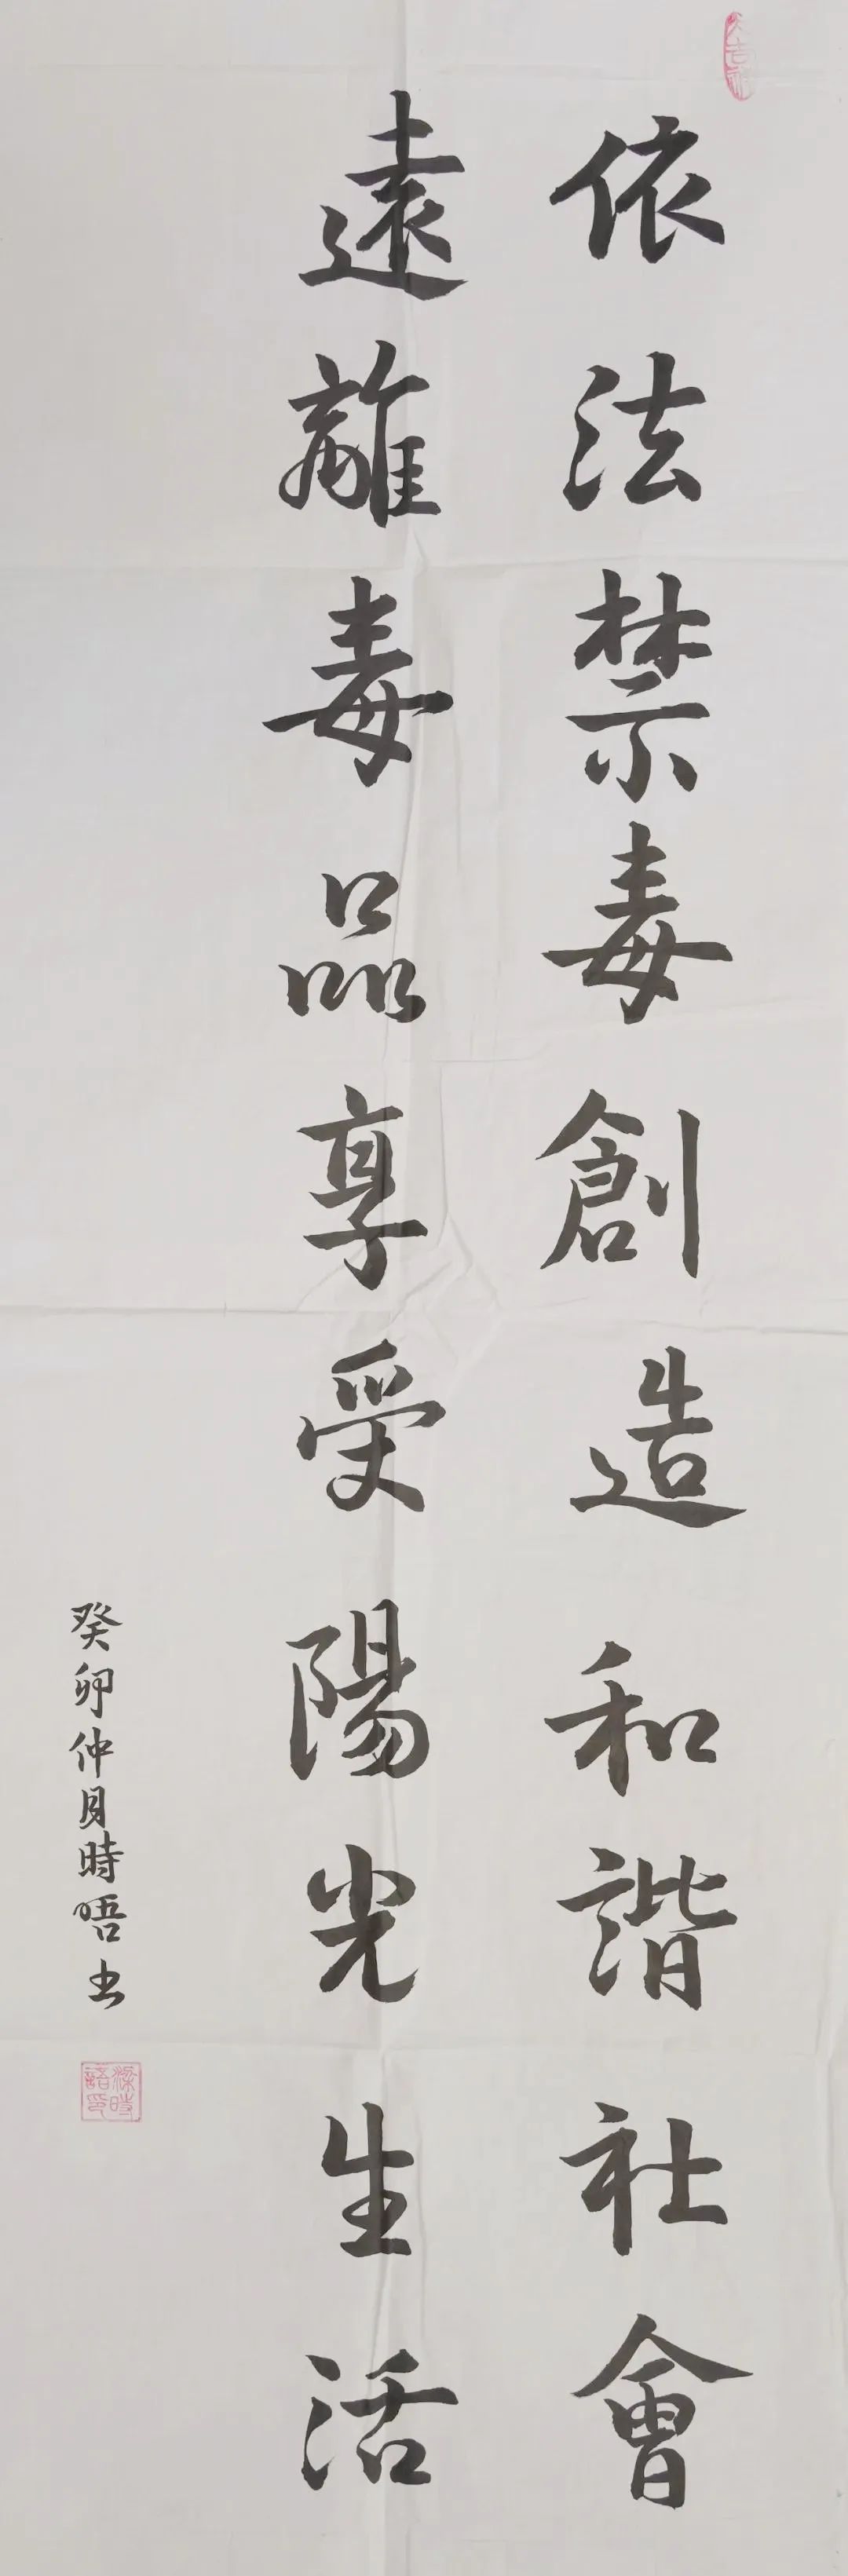 依法禁毒創造和諧社會
遠離毒品享受陽光生活
癸卯仲月時晤书